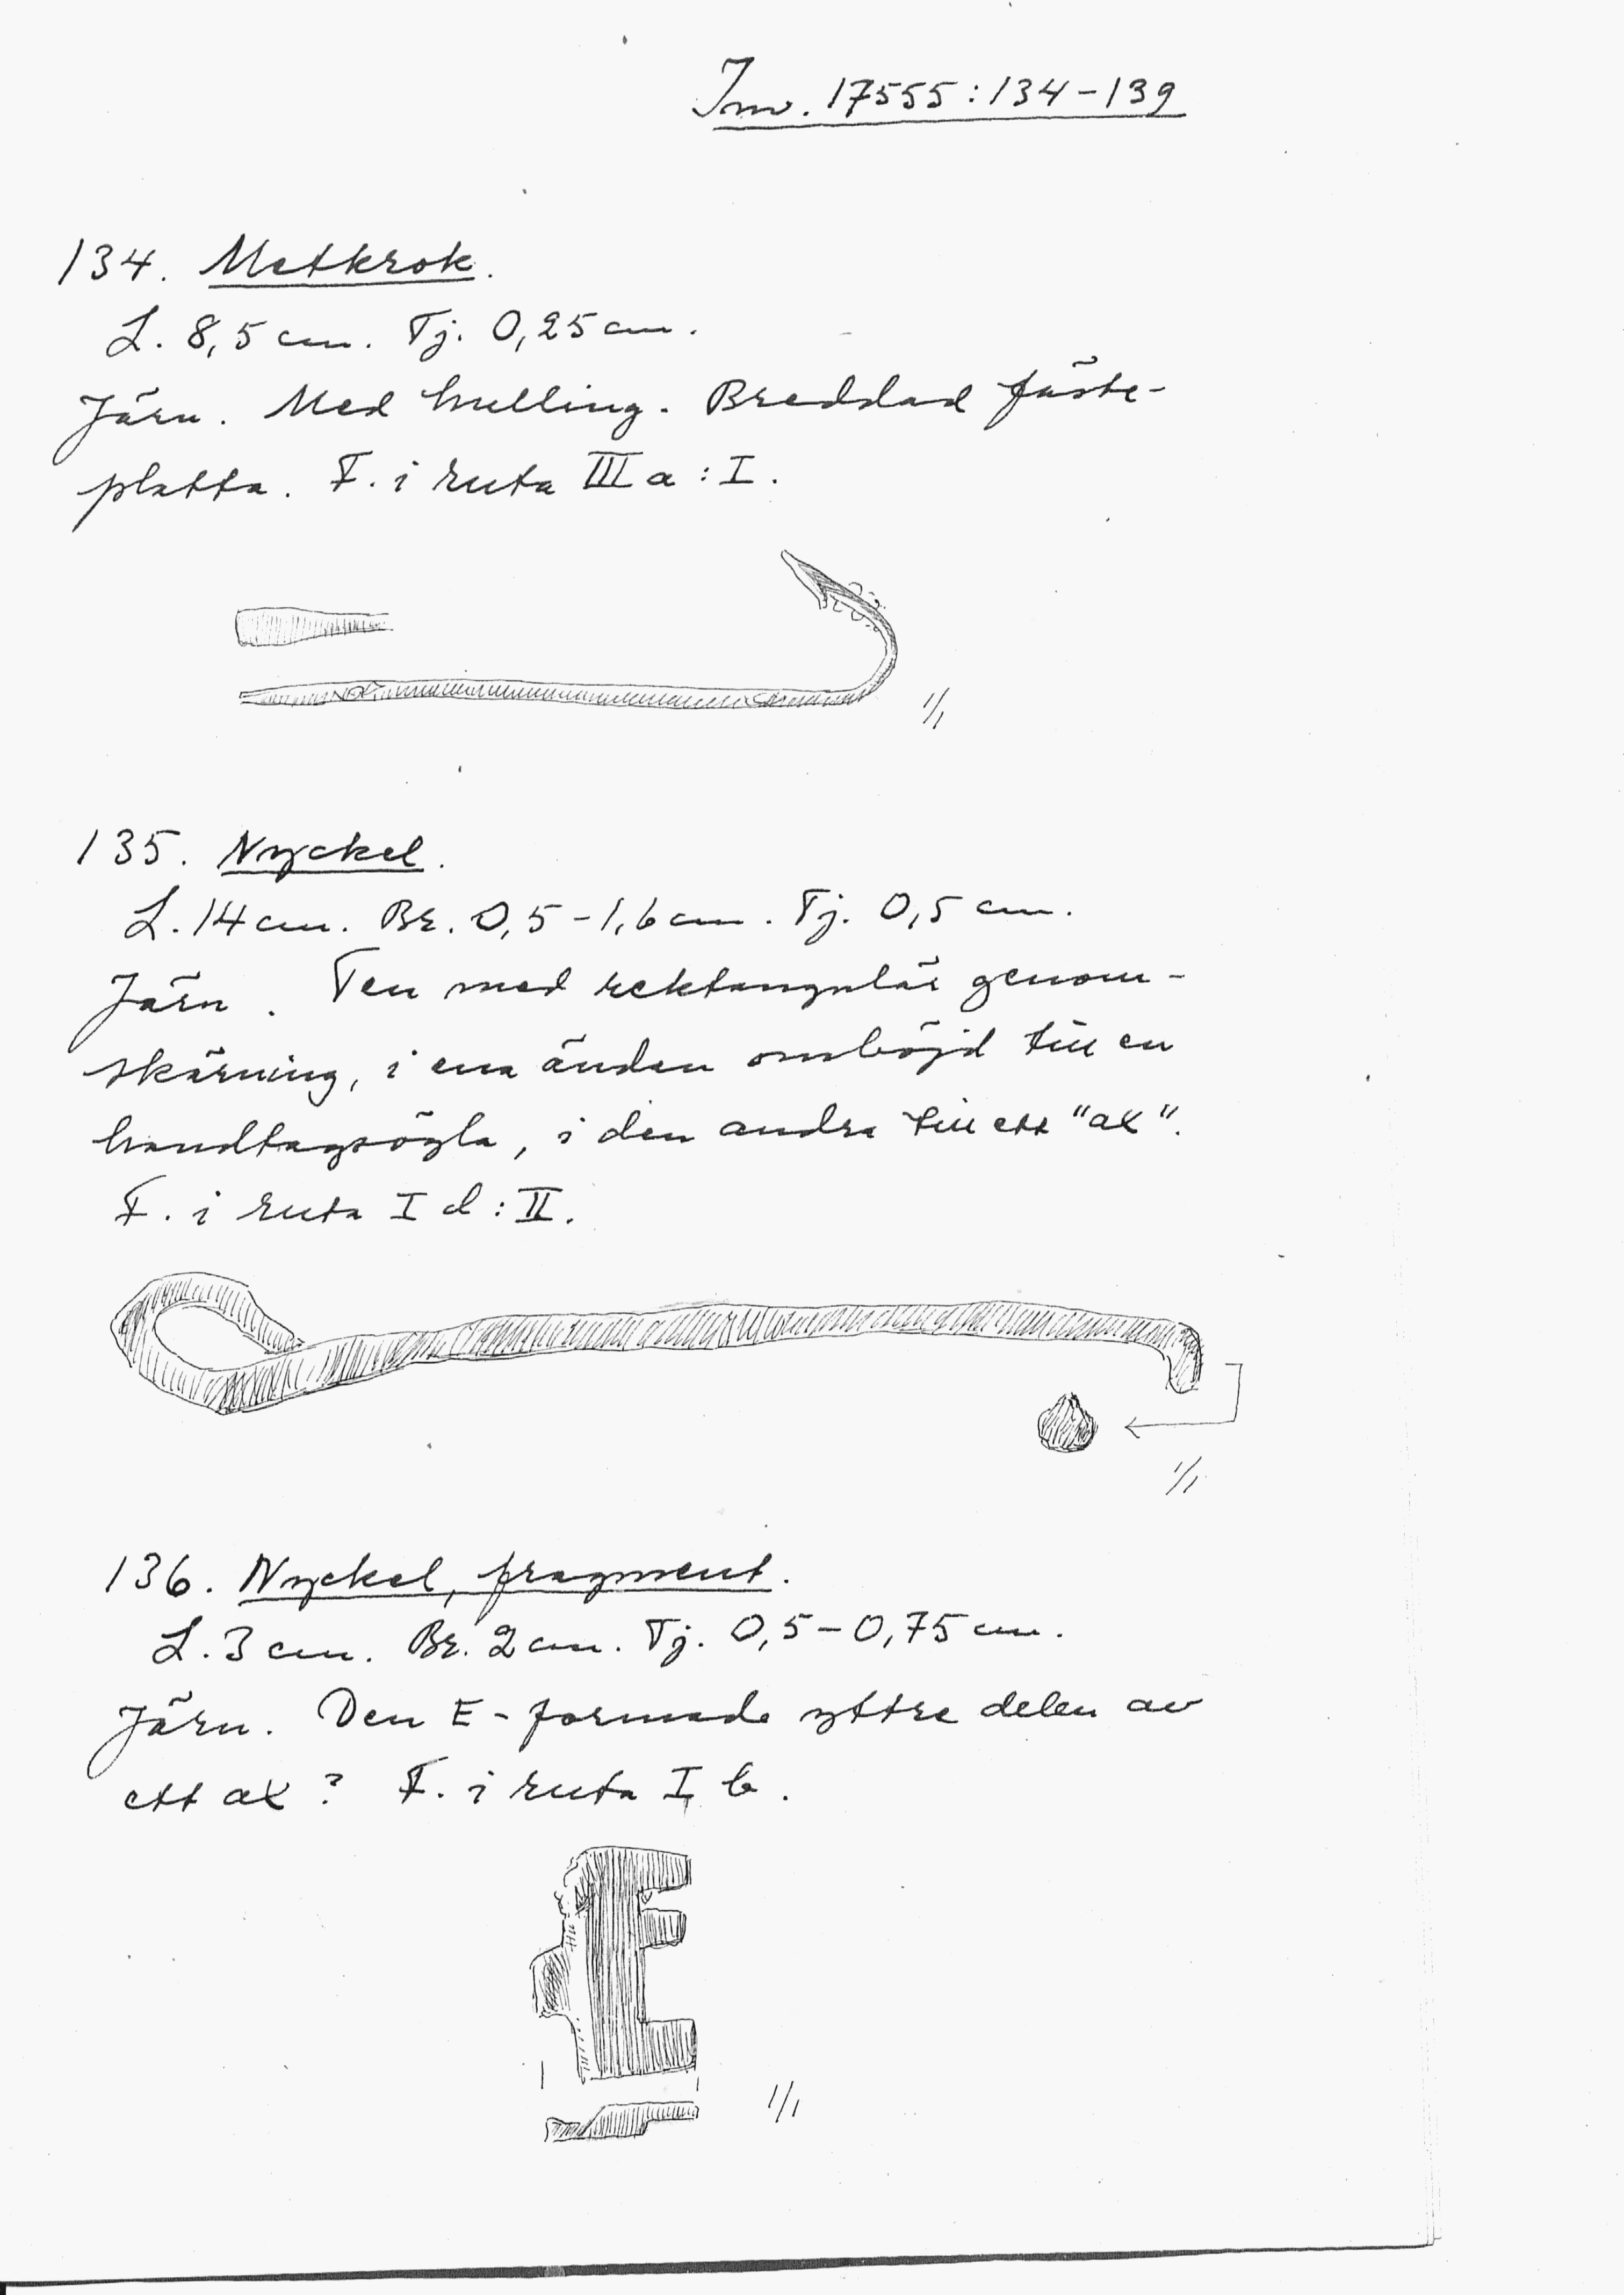 Inv. 17555:134-139
134. Metkrok.
L. 8,5 cm. Tj. 0,25 cm.
Järn. Med hulling. Breddad fäste-
platta. F. i ruta III a : I.
1/1
135. Nyckel.
L. 14 cm. Br. 0,5-1,6 cm. Tj. 0,5 cm.
Järn. Ten med rektangulär genom-
skärning, i ena änden omböjd till en
handtagsögla, i den andra till ett "ax".
F. i ruta I d : II.
1/1
136. Nyckel, fragment.
L. 3 cm. Br. 2 cm. Tj. 0,5-0,75 cm.
Järn. Den E-formade yttre delen av
ett ax? F. i ruta I b.
1/1